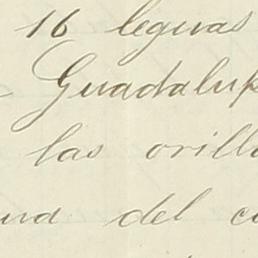 16 leguas
Guadalup
las orill
und del c